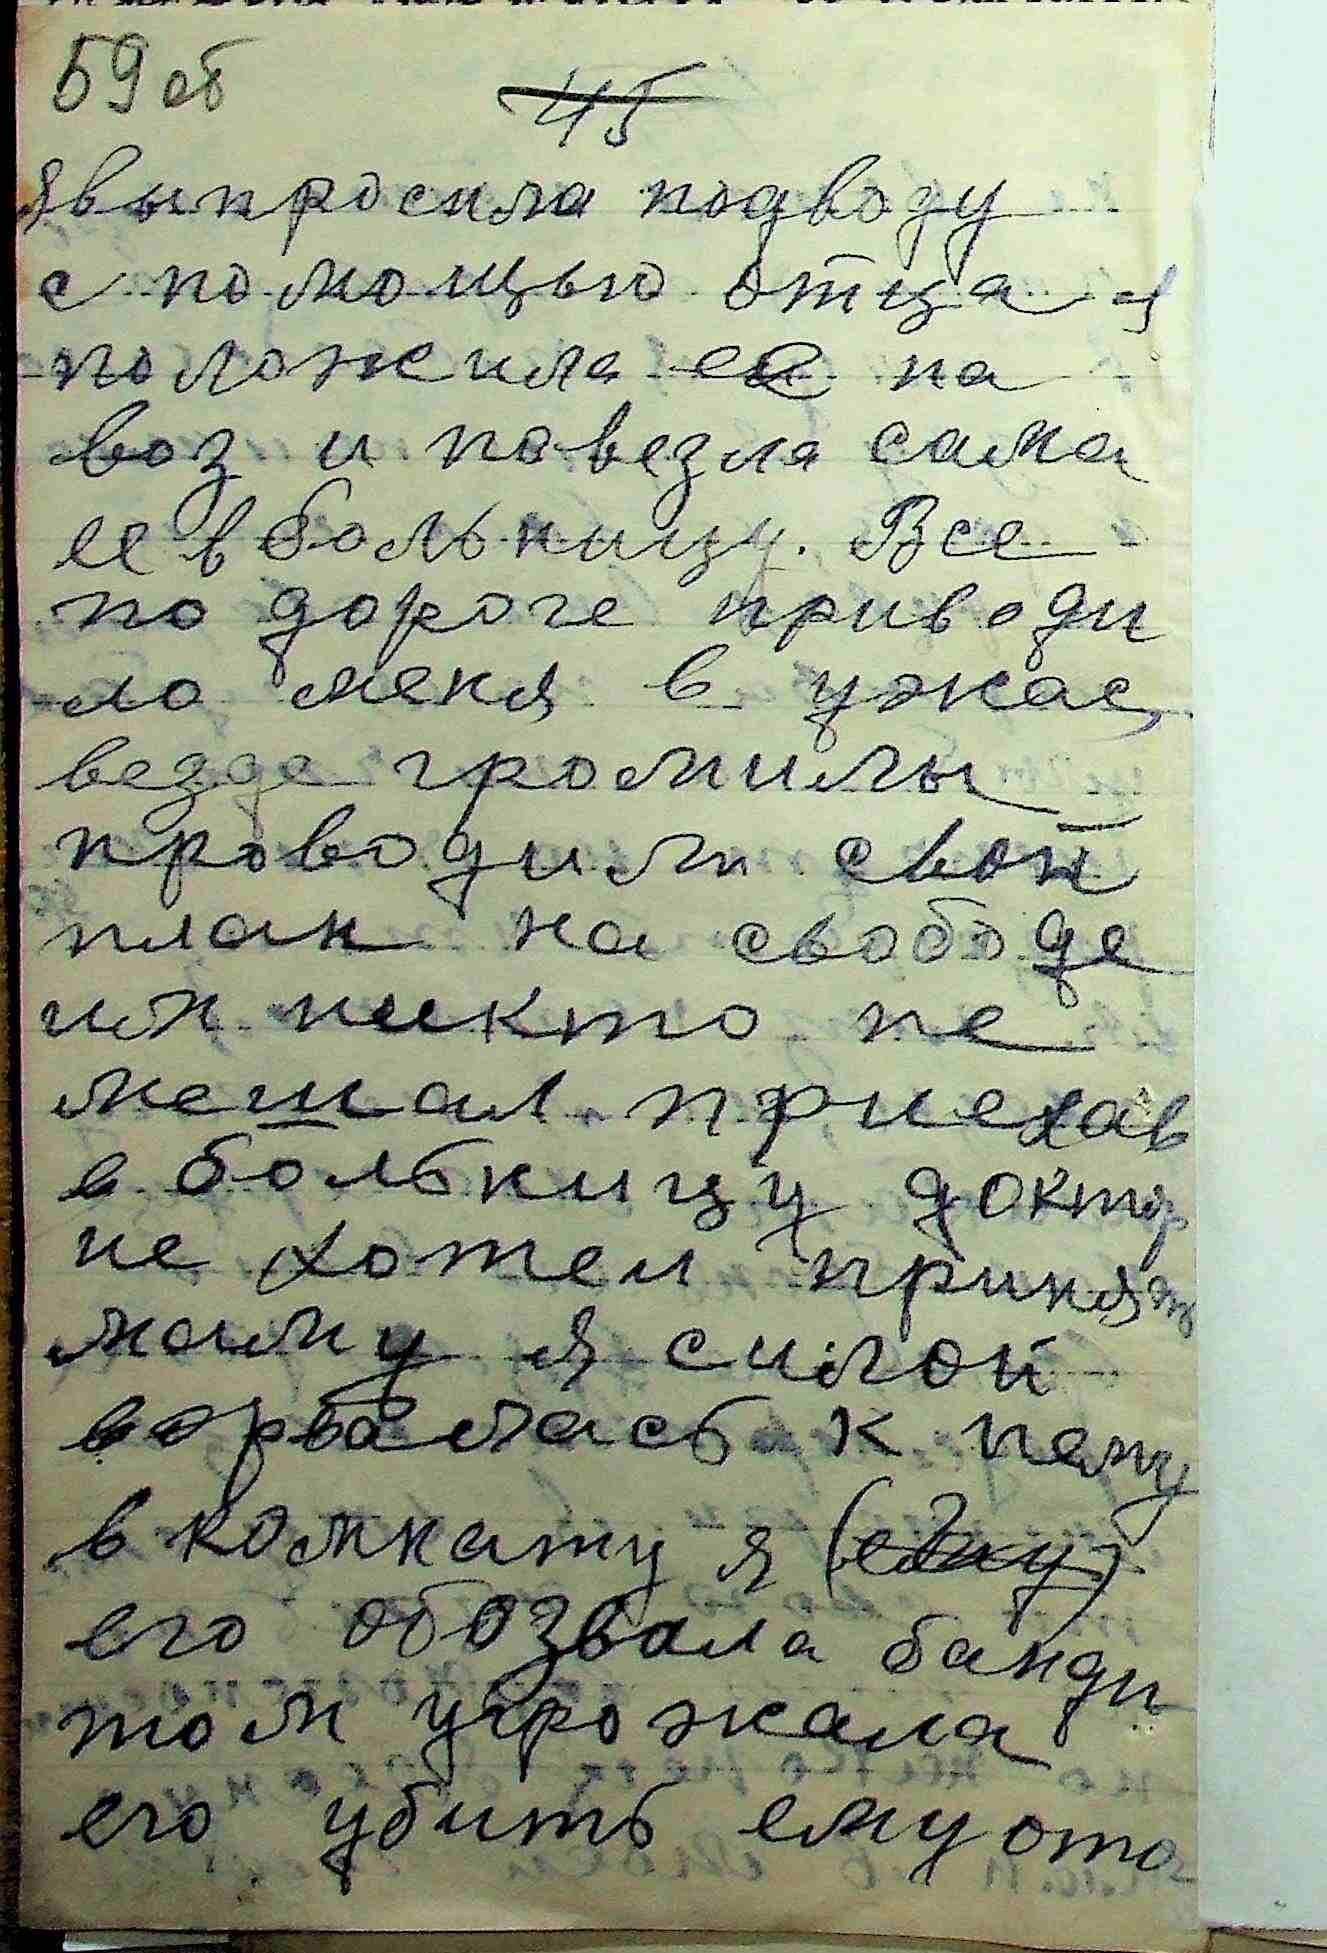 59 об
45
я выпросила подводу
с помощью отца я
положила ее на
воз и повезла сама
ее в больницу. Все
по дороге приводи
ло меня в ужас,
везде громилы
проводили свой
план на свободе
им никто не
мешал приехав
в больницу доктор
не хотел принять
маму я силой
ворвалась к нему
в комнату я
его обозвала банди
том угрожала
его убить ему ото